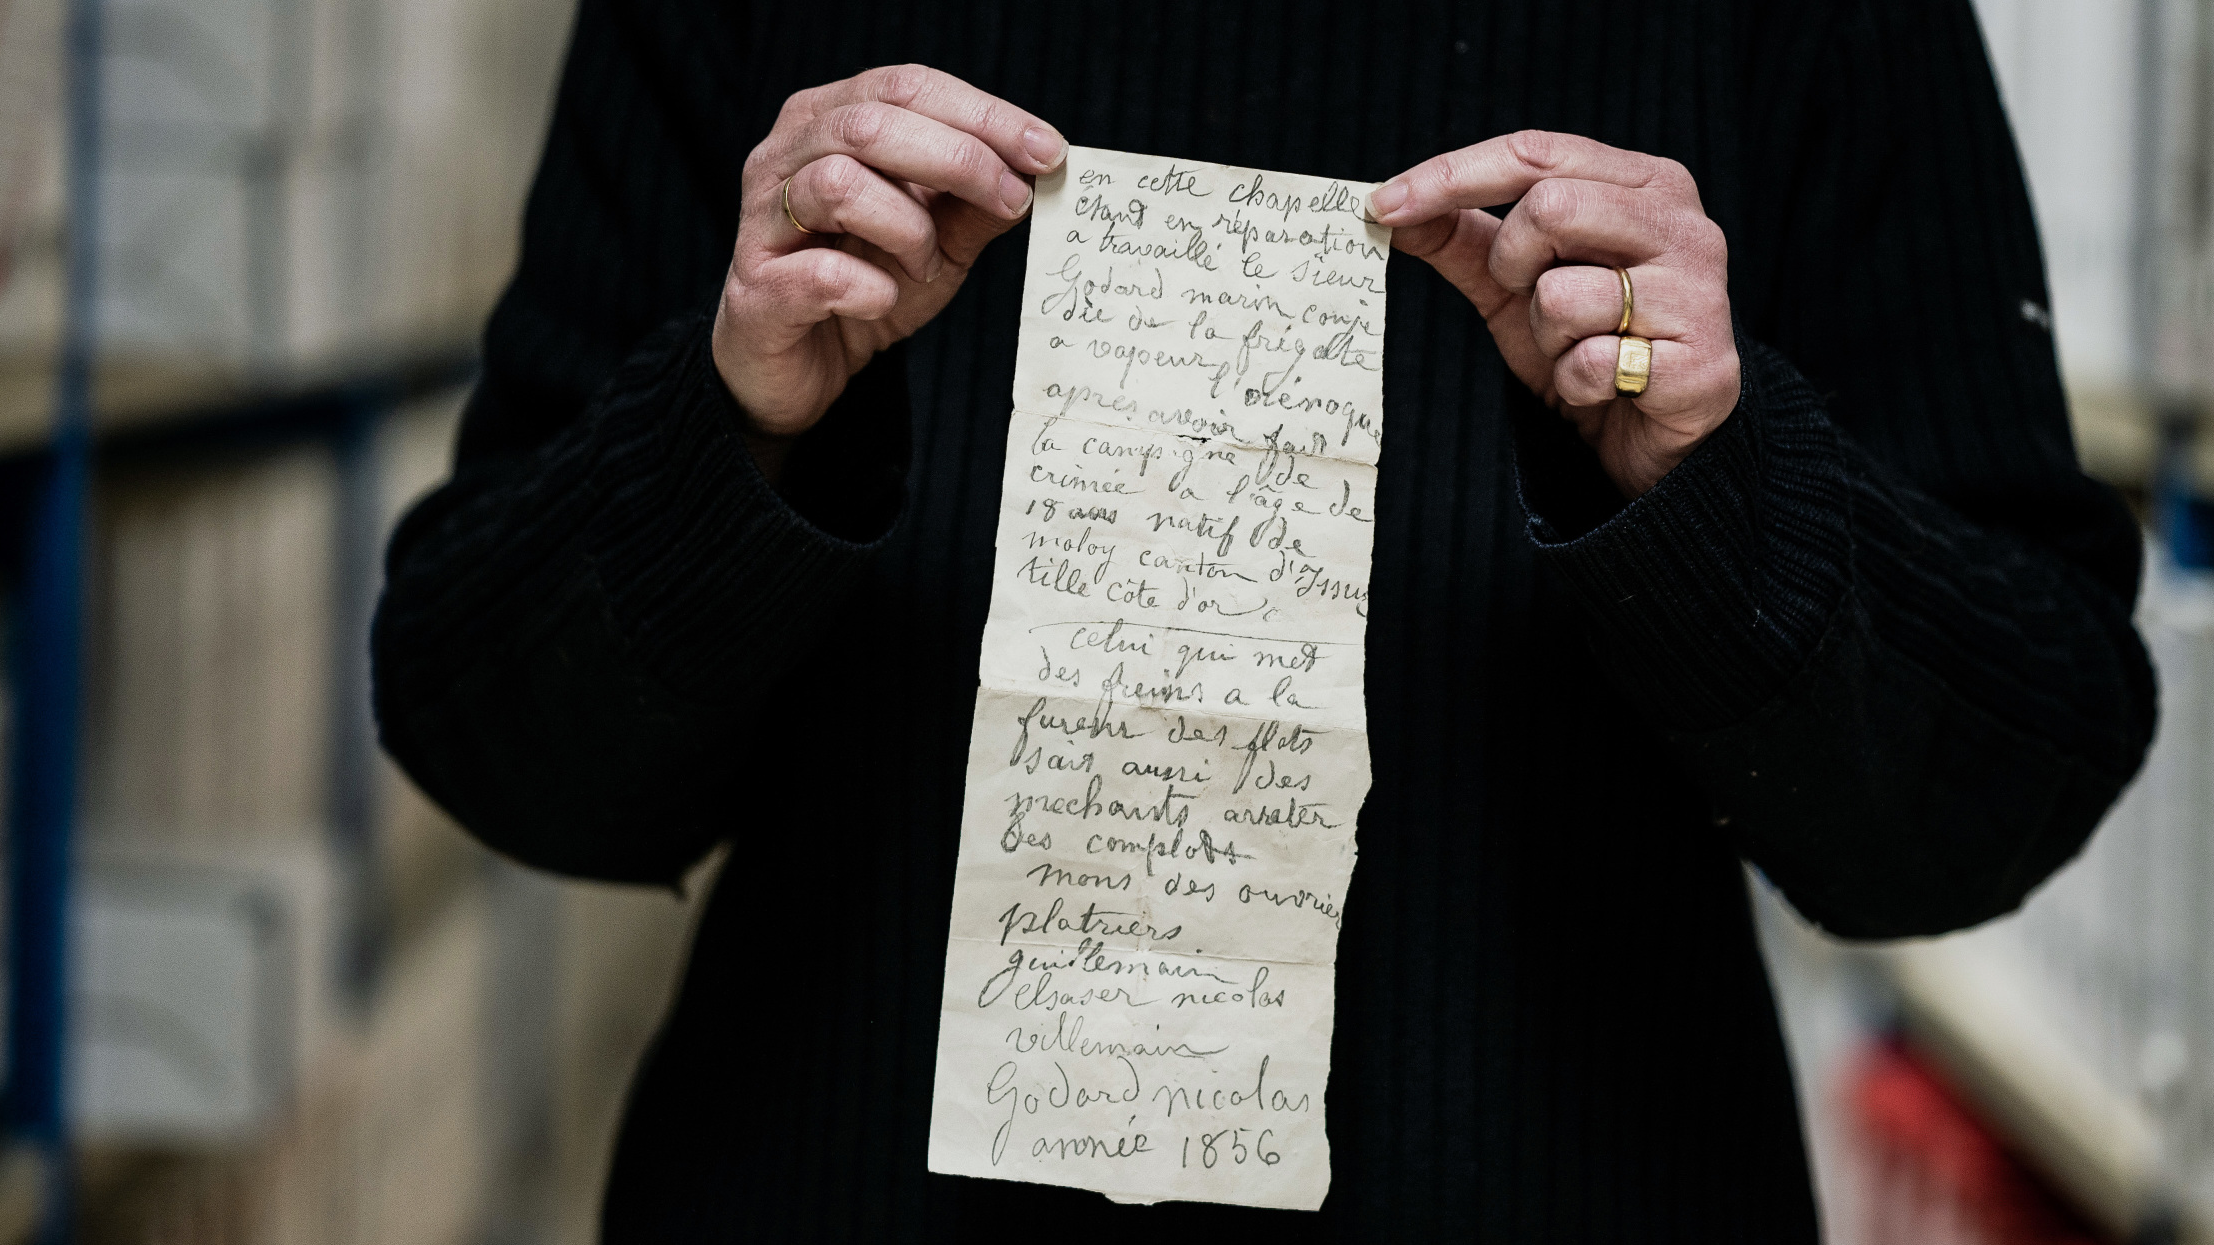 en cette chapelle
étant en réparation
a travaillé le sieur
Godard marin conje
die de la frégate
a vapeur l'orénoque
après avoir fait
la campagne de
crimée a l'âge de
18 ans natif de
moloy canton d'Issu
tille côte d'or
celui qui met
des freins a la
fureur des flots
sait aussi des
mechants arreter
des complots
des ouvrier
platriers
guillemain
elsaser nicolas
villemain
Godard nicolas
année 1856